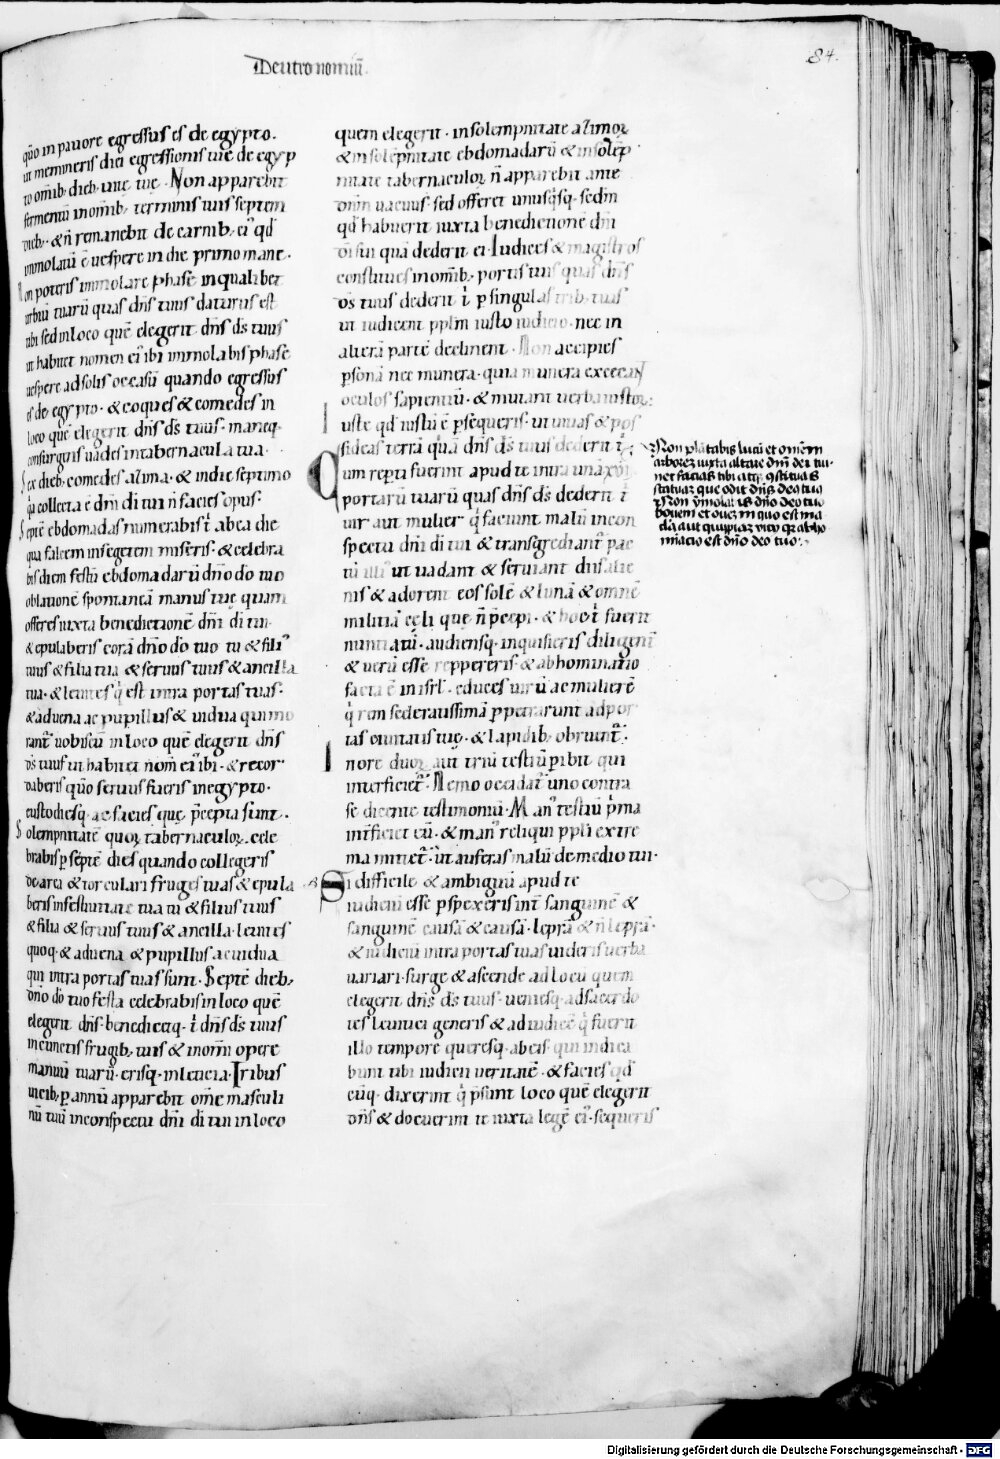 Deutronomiũ.
84.
qũo in pauore egressus es de egypto.
ut memineris diei egressionis tue de egyp
to om̃ib; dieb; uite tue. Non apparebit
fermentũ in om̃ib; terminis tuis septem
dieb; & ñ remanebit de carnib; ei᷒ qđ
immolatũ ẽ uespere in die primo mane.
Non poteris immolare phase in qualibet
urbiũ tuarũ quas dñs tuus daturus est
tibi sed in loco quẽ elegerit dñs ds̃ tuus
ut habitet nomen ei᷒ ibi immolabis phase
uespere ad solis occasũ quando egressus
es de egypto. & coques & comedes in
loco quẽ elegerit dñs ds̃ tuus. maneq;
consurgens uades in tabernacula tua.
Sex dieb; comedes azima. & in die septimo
q̃a collecta ẽ dñi di tui ñ facies opus.
Septẽ ebdomadas numerabis t̃ ab ea die
qua falcem in segetem miseris. & celebra
bis diem festũ ebdomadarũ dño dõ tuo
oblationẽ spontaneã manus tue quam
offeres iuxta benedictionẽ dñi di tui.
& epulaberis corã dño dõ tuo tu & fili᷒
tuus & filia tua & seruus tuus & ancilla
tua. & leuites q̃ est intra portas tuas.
& aduena ac pupillus & uidua qui mo
rant᷒ uobiscũ in loco quẽ elegerit dñs
ds̃ tuus ut habitet nom̃ ei᷒ ibi. & recor
daberis qũo seruus fueris in egypto.
custodiesq; ac facies que p̃cepta sunt.
Solempnitatẽ quoq; tabernaculoꝝ cele
brabis ꝑ septẽ dies quando collegeris
de area & torculari fruges tuas & epula
beris in festiuitate tua tu & filius tuus
& filia & seruus tuus & ancilla. leuites
quoq; & aduena & pupillus ac uidua
qui intra portas tuas sunt. Septẽ dieb;
dño dõ tuo festa celebrabis in loco quẽ
elegerit dñs. benedicetq; t̃ dñs ds̃ tuus
in cunctis frugib; tuis & in om̃i opere
manuũ tuarũ. erisq; in leticia. Trib᷒
uicib; ꝑ annũ apparebit om̃e masculi
nũ tuũ in conspectu dñi di tui in loco
quem elegerit. in solempnitate azimoꝝ
& in solẽpnitate ebdomadarũ & in solẽp
nitate tabernaculoꝝ. ñ apparebit ante
dñm uacuus. sed offeret unusq̃sq; sedm
qđ habuerit iuxta benedictionẽ dñi
di sui quã dederit ei. Iudices & magistros
constitues in om̃ib; portis tuis quas dñs
ds̃ tuus dederit t̃ ꝑ singulas trib; tuas
ut iudicent ppl̃m iusto iudicio. nec in
alterã partẽ declinent. Non accipies
ꝑsonã nec munera. quia munera excecant
oculos sapientiũ. & mutant uerba iustoꝝ.
Iuste qđ iustũ ẽ ꝑsequeris. ut uiuas & pos
sideas terrã quã dñs ds̃ tuus dederit t̃.
Cum reperti fuerint apud te intra unã
portarũ tuarũ quas dñs ds̃ dederit t̃
uir aut mulier q̃ faciant malũ in con
spectu dñi di tui & transgrediant᷒ pac
tũ illi᷒ ut uadant & seruiant diis alie
nis & adorent eos solẽ & lunã & omnẽ
militiã celi que ñ p̃cepi. & hoc t̃ fuerit
nuntiatũ. audiensq; inquisieris diligent᷒
& uerũ esse reppereris. & abhominatio
facta ẽ in isrl̃. educes uirũ ac mulierẽ
q̃ rem sceleratissimã ꝑpetrarunt ad por
tas ciuitatis tue. & lapidib; obruent᷒.
In ore duoꝝ aut triũ testiũ ꝑibit qui
interficiet᷒. Nemo occidat᷒ uno contra
se dicente testimoniũ. Man᷒ testiũ p̃ma
int᷒ficiet eũ. & man᷒ reliqui ppl̃i extre
ma mittet᷒. ut auferas malũ de medio tui.
Si difficile & ambiguũ apud te
iudiciũ esse ꝑspexeris int᷒ sanguinẽ &
sanguinẽ causã & causã. leprã & ñ leprã.
& iudiciũ intra portas tuas uideris uerba
uariari. surge & ascende ad locũ quem
elegerit dñs ds̃ tuus. ueniesq; ad sacerdo
tes leuitici generis & ad iudicẽ q̃ fuerit
illo tempore queresq; ab eis. qui indica
bunt tibi iudicii ueritatẽ. & facies qđ
cũq; dixerint q̃ p̃sunt loco quẽ elegerit
dñs & docuerint te iuxta legẽ ei᷒. sequeris
Non plãtabis lucũ et omẽm
arborez iuxta altare dñi dei tui.
nec facias tibi atq; ꝯstituas
statuaz que odit dñs deo tuo
Non ymolabis dño deo tuo
bouem et ouez in quo est ma
cla aut quipiaz vicij qr abho
minacio est dño deo tuo.
Digitalisierung gefördert durch die Deutsche Forschungsgemeinschaft - DFG